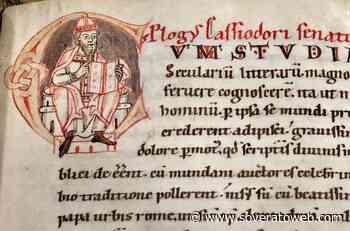 Plogꝰ Cassiodori senat
VM STVDI
Seculariū litterarū magno
feruere cognoscerē. ita ut m
hominū. ꝑ ipsa se mundi pru
crederent adipisci. grauissim
dolore ꝑmotꝰ. qđ scripturis diuinis
blici deēēnt. cū mundani auctores celebrim
bio traditione pollerent. sū cū beatissim
papa urbis rome,
www.soveratoweb.com